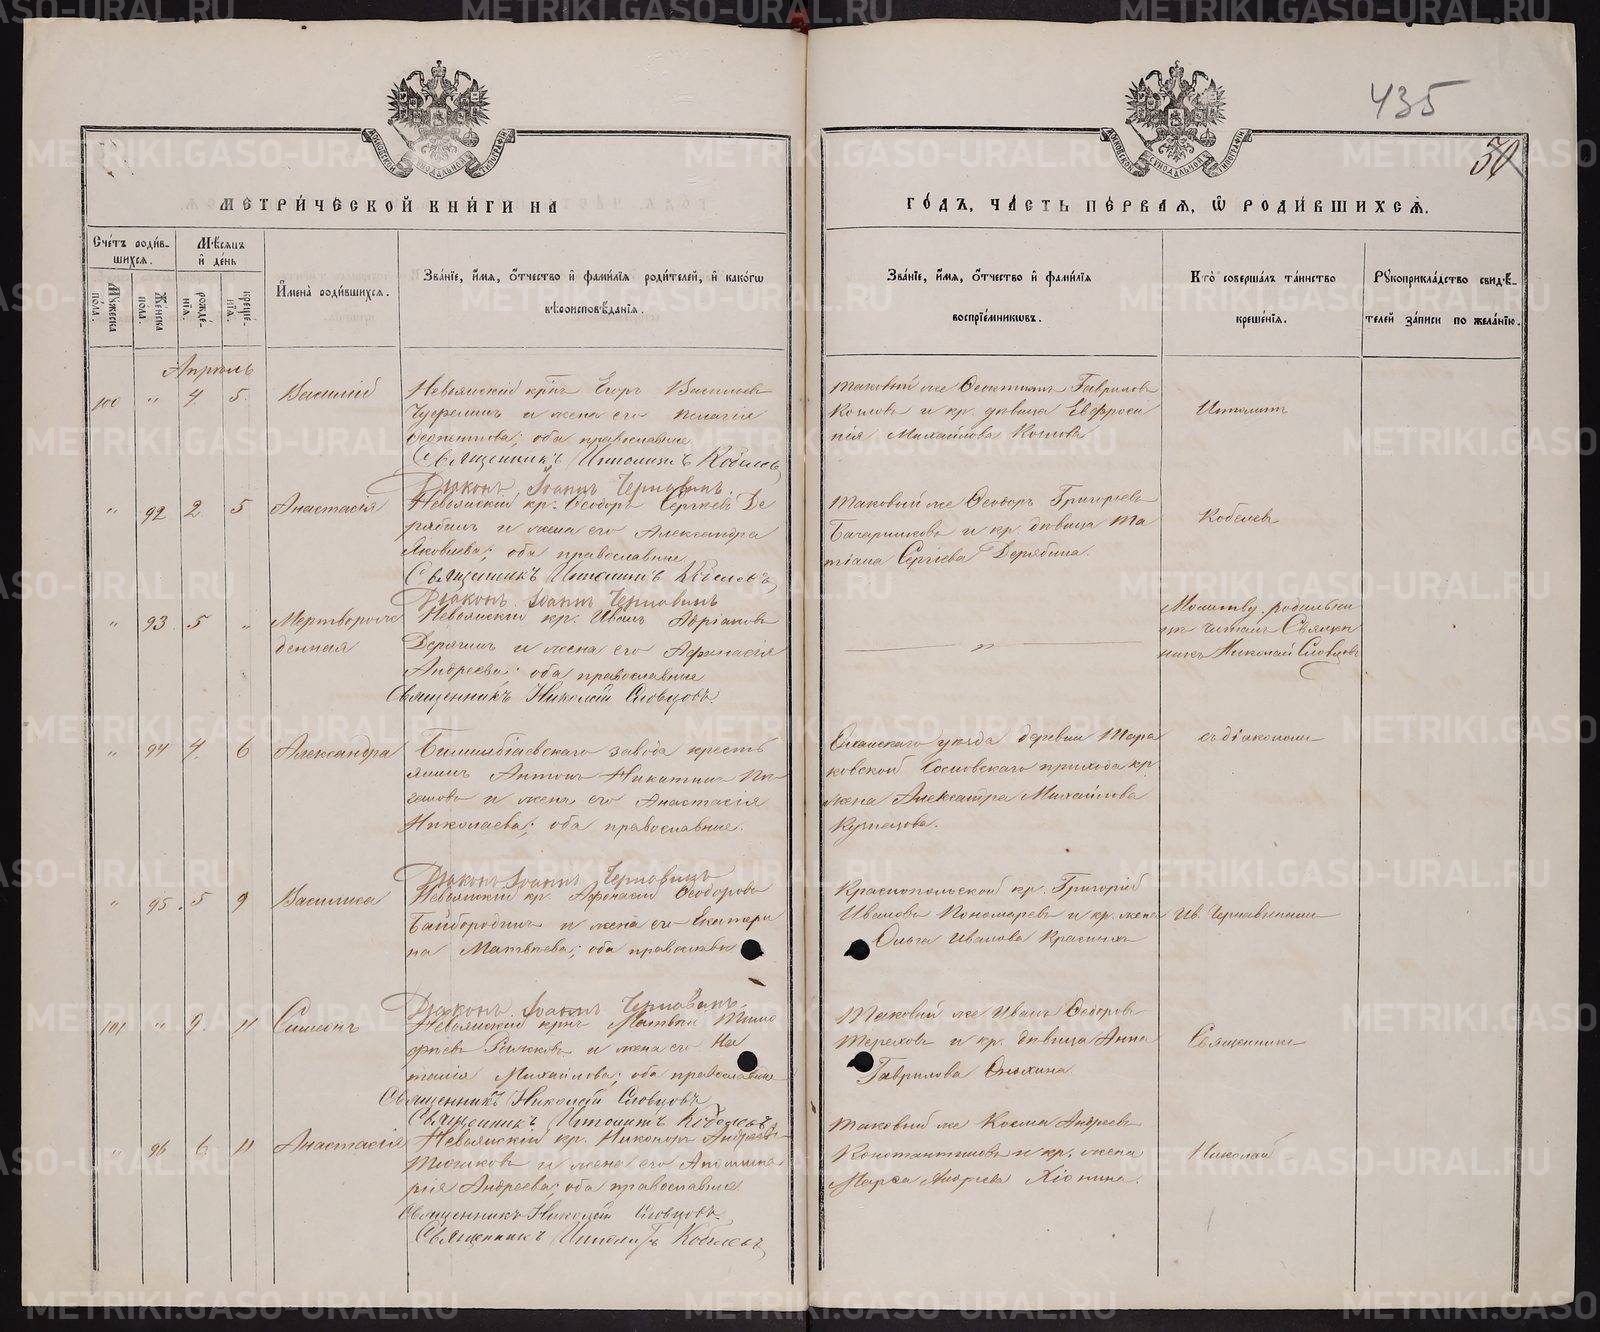 435
50
МЕТРИ́ЧЕСКОЙ КНИ́ГИ НА
ГО́ДЪ, ЧА́СТЬ ПЕ́РВАЯ, Ѡ РОДИ́ВШИХСѦ.
Сче́тъ роди́в-
шихсѧ.
Мѣ́сѧцъ
и҆ де́нь
Мꙋ́жеска
по́ла.
Же́нска
по́ла.
рожде́-
нїѧ.
креще́-
нїѧ.
И҆мена̀ роди́вшихсѧ.
Зва́нїе, и҆́мѧ, ѻ҆́тчество и҆ фами́лїѧ роди́телей, и҆ како́гѡ
вѣроисповѣ́данїѧ.
Зва́нїе, и҆́мѧ, ѻ҆́тчество и҆ фами́лїѧ
воспрїе́мниковъ.
Кто̀ соверша́лъ та́инство
креще́нїѧ.
Рꙋкоприкла́дство свидѣ́-
телей за́писи по жела́нїю.
Апрѣль
100 " 4 5. Василій
Невьянскій крнъ Егоръ Васильевъ
и жена его Пелагія
оба православные
Священникъ Ипполитъ Кобелевъ
Діаконъ Іоаннъ Чернавинъ.
таковый же Гавриловъ
Козловъ и кр. дѣвица Евфроси
нія Михайлова Козлова
Ипполитъ
" 92 2 5 Анастасія
Невьянскій кр. Ѳеодоръ Сергѣевъ Де
рябинъ и жена его Александра
Яковлева; оба православные
Священникъ Ипполитъ Кобелевъ
Діаконъ Іоаннъ Чернавинъ
таковый же Ѳеодоръ Григорьевъ
и кр. дѣвица Та
тіана Сергѣева Дерябина.
Кобелевъ
" 93 5 " Мертворож
денная
Невьянскій кр. Иванъ Адріановъ
и жена его Афанасія
Андреева; оба православные
Священникъ Николай Словцовъ.
"
Молитву родильни
цѣ читалъ Священ
никъ Николай Словцовъ
" 94 4. 6 Александра
Билимбаевскаго завода кресть
янинъ Антонъ Никитинъ
и жена его Анастасія
Николаева; оба православные.
Оханскаго уѣзда деревни
Сосновскаго прихода кр.
жена Александра Михайлова
Кузнецова.
съ діакономъ
" 95. 5 9 Василиса
Діаконъ Іоаннъ Чернавинъ
Невьянскій кр. Афанасій Ѳеодоровъ
Байбородинъ и жена его Екатери
на Матвѣева; оба православн
Краснопольской кр. Григорій
Ивановъ Пономаревъ и кр. жена
Ольга Иванова Красныхъ
Ив. Чернавинымъ
Діаконъ Іоаннъ Чернавинъ.
101 " 9. 11 Симеонъ
Невьянскій крнъ Матвѣй Тимо
феевъ и жена его На
талія Михайлова; оба православные
Священникъ Николай Словцовъ
Священникъ Ипполитъ Кобелевъ
Таковый же Иванъ Ѳедоровъ
Тереховъ и кр. дѣвица Анна
Гаврилова Онохина.
Священникъ
" 96 6 11 Анастасія
Невьянскій кр. Никаноръ Андреевъ
и жена его Аполлина
рія Андреева; оба православные
Священникъ Николай Словцовъ.
Священникъ Ипполитъ Кобелевъ
таковый же Косма Андреевъ
Константиновъ и кр. жена
Марѳа Андреева Хіонина.
Николай